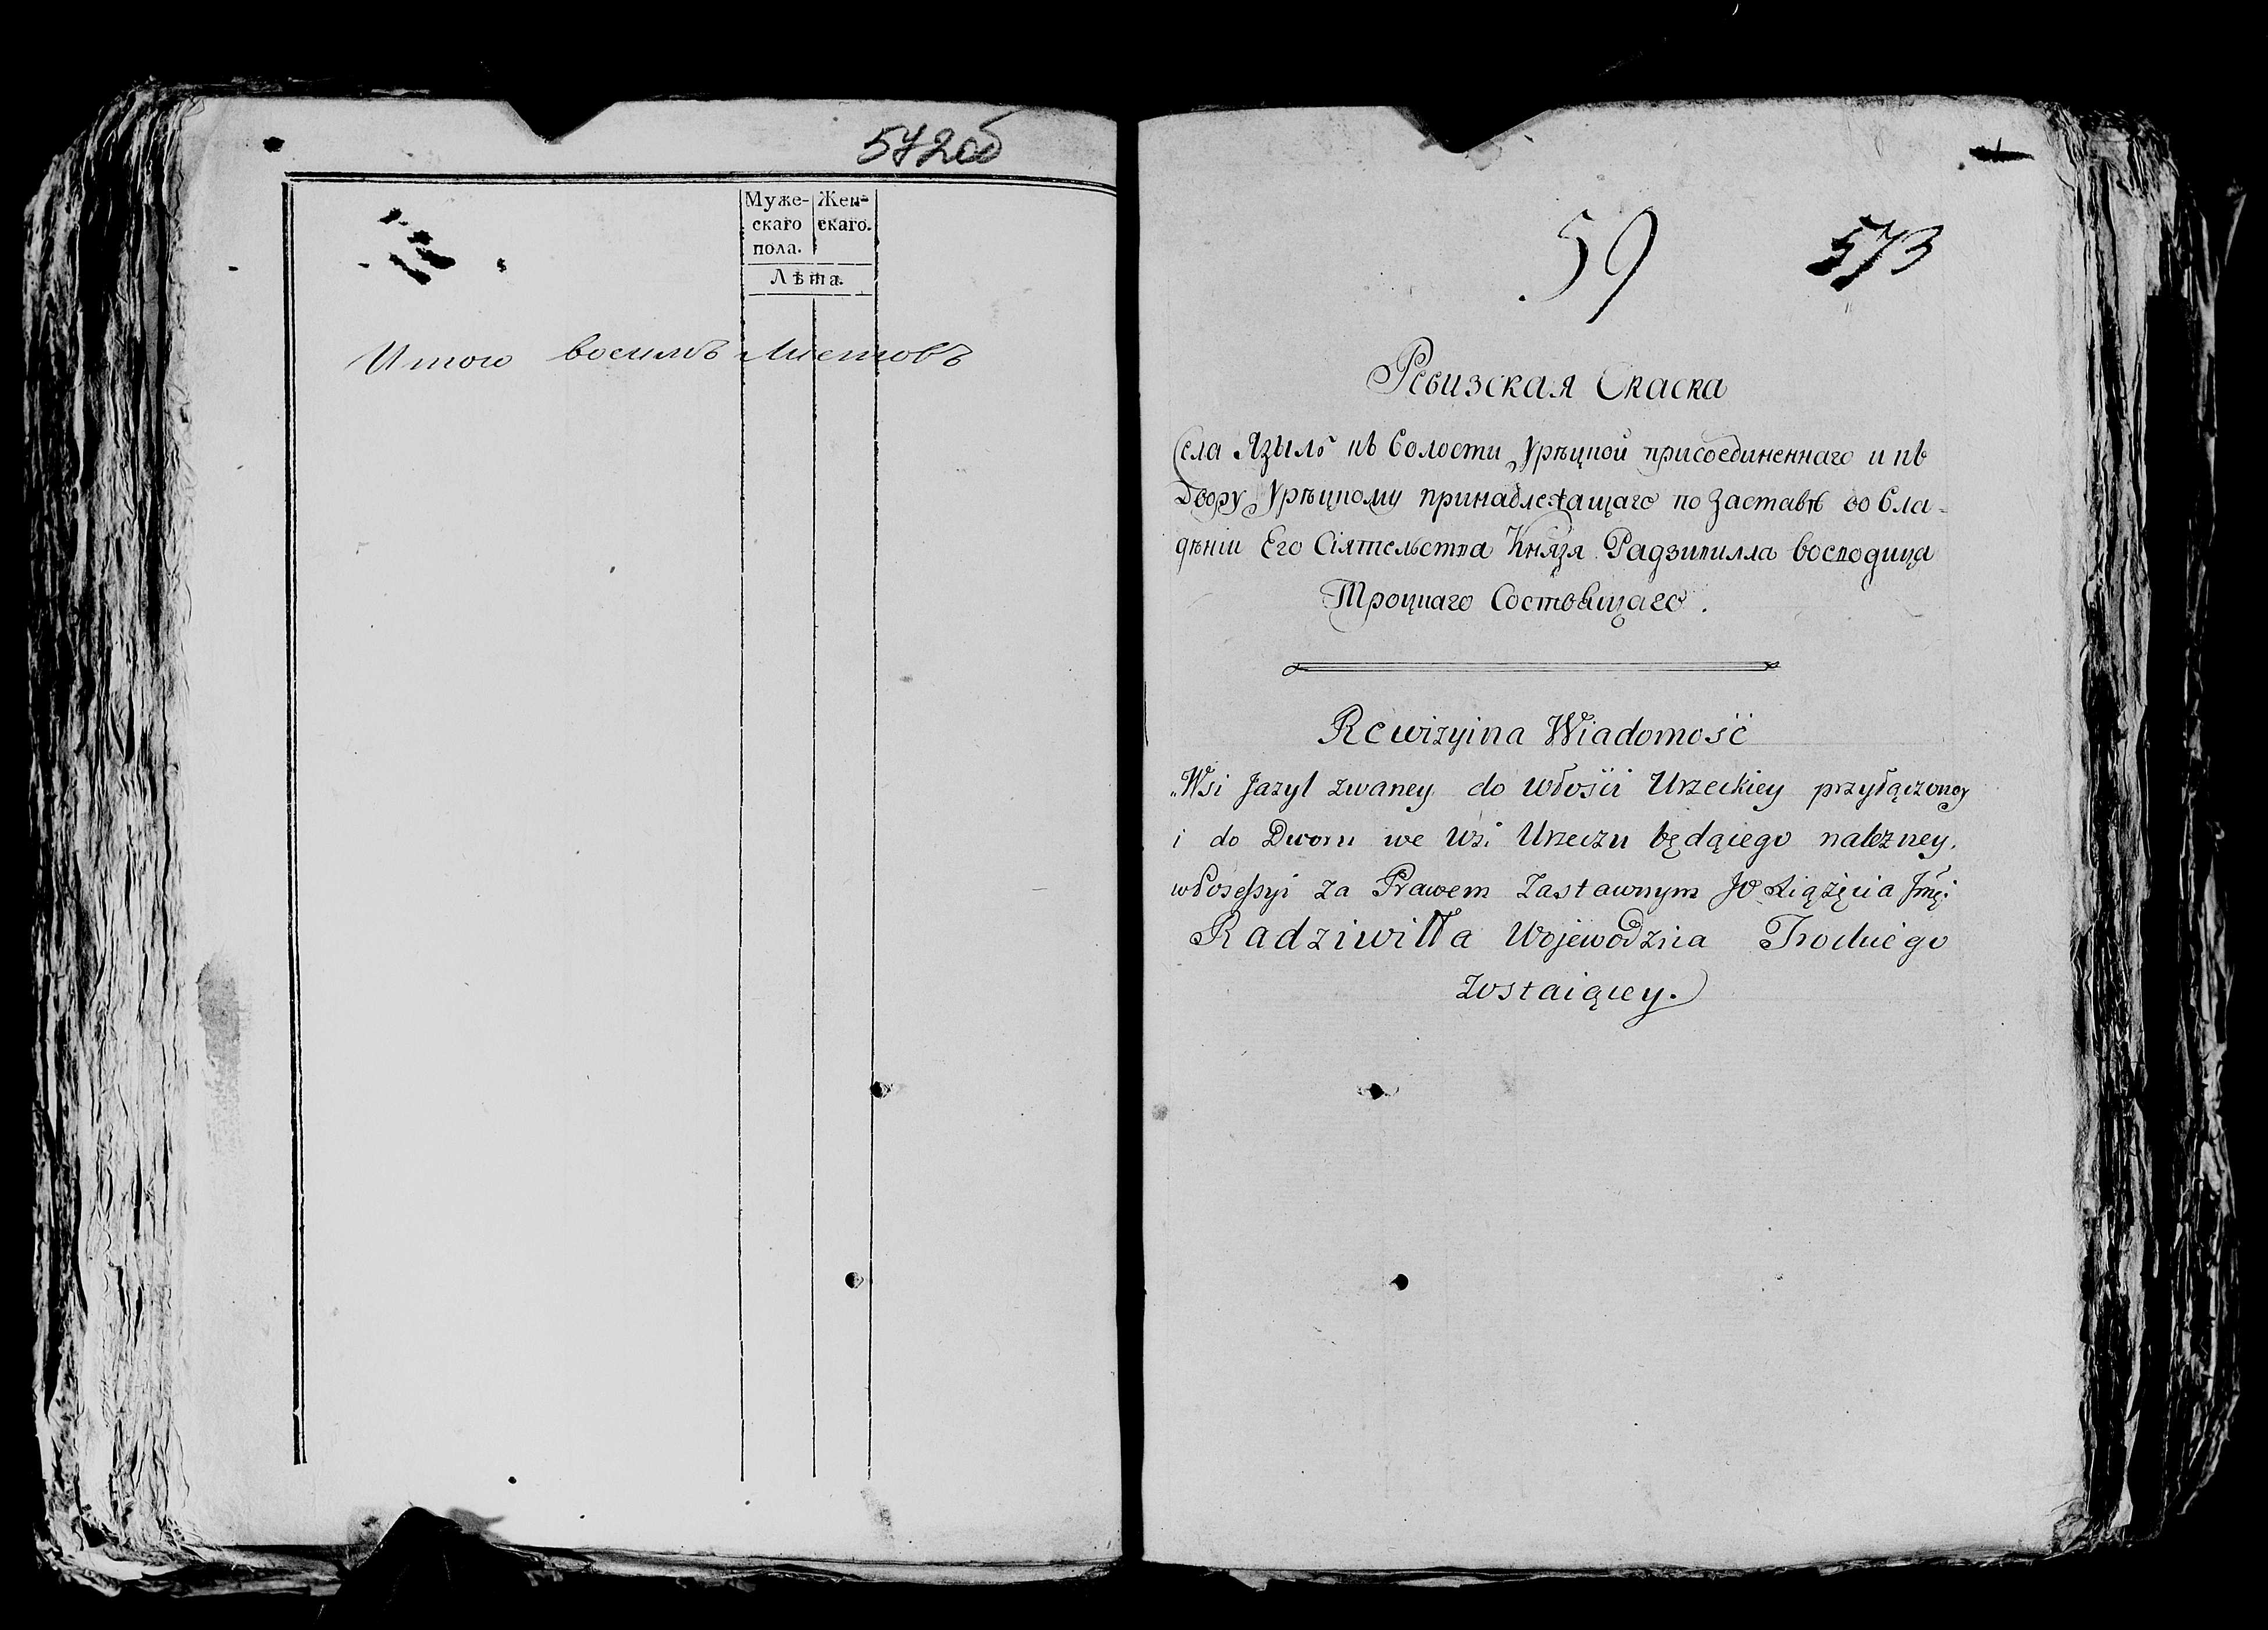 572об
Муже- Жен-
скаго скаго.
пола.
Лѣта.
Итого восимъ листовъ
59 573
Ревизская Скаска
Села Языль къ Волости Урѣцкой присоединеннаго и къ
Двору Урѣцкому принадлежащаго по Заставѣ во Вла-
дѣніи Его Сіятельства Князя Радзивилла
Троцкаго Состоящаго.
Rewizyina Wiadomość
Wsi Jazyl zwaney do Włości Urzeckiey przyłączoney
i do Dworu we Wsi Urzeczu będącego należney,
w Possessyi za Prawem Zastawnym JO Xiążęcia Jmći
Radziwiłła Wojewodzica Trockiego
Zostaiącey.